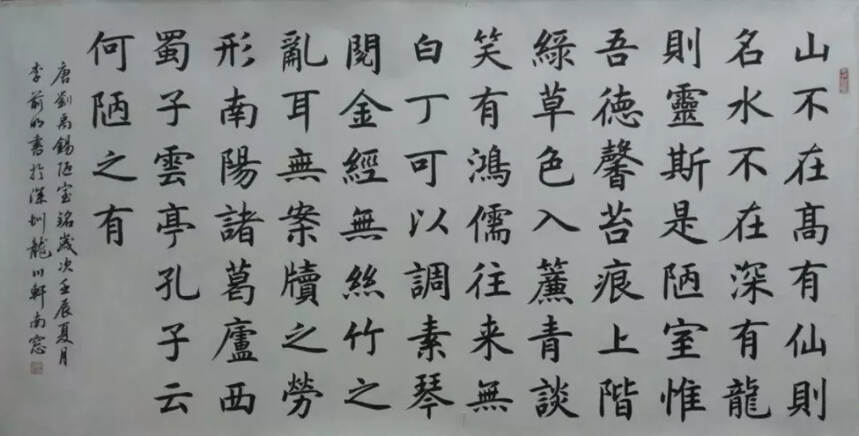 山不在髙有仙則
名水不在深有龍
則靈斯是陋室惟
吾德馨苔痕上階
綠草色入簾青談
笑有鴻儒往来無
白丁可以調素琴
閱金經無絲竹之
亂耳無案牘之勞
形南陽諸葛廬西
蜀子雲亭孔子云
何陋之有
唐劉禹錫陋室銘歲次壬辰夏月
李前書於深圳龍川軒南窓